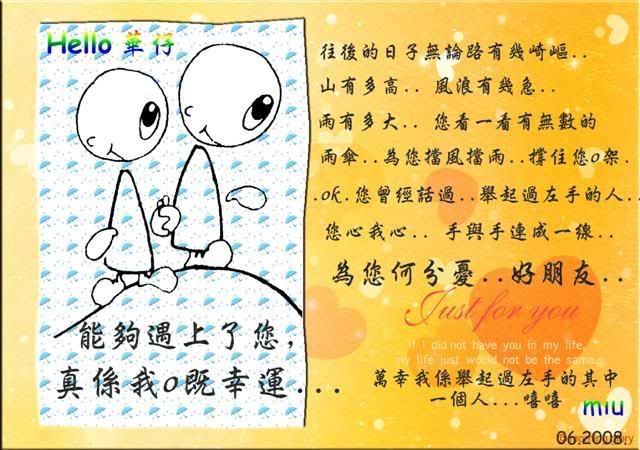 Hello 華仔
能夠遇上了您,
真係我o既幸運...
往後的日子無論路有幾崎嶇..
山有多高.. 風浪有幾急..
雨有多大.. 您看一看有無數的
雨傘..為您擋風擋雨..撐住您o架.
.ok.您曾經話過..舉起過左手的人..
您心我心.. 手與手連成一線..
為您何分憂..好朋友..
Just for you
If I did not have you in my life,
my life just would not be the same.
萬幸我係舉起過左手的其中
一個人...嘻嘻
miu
06.2008